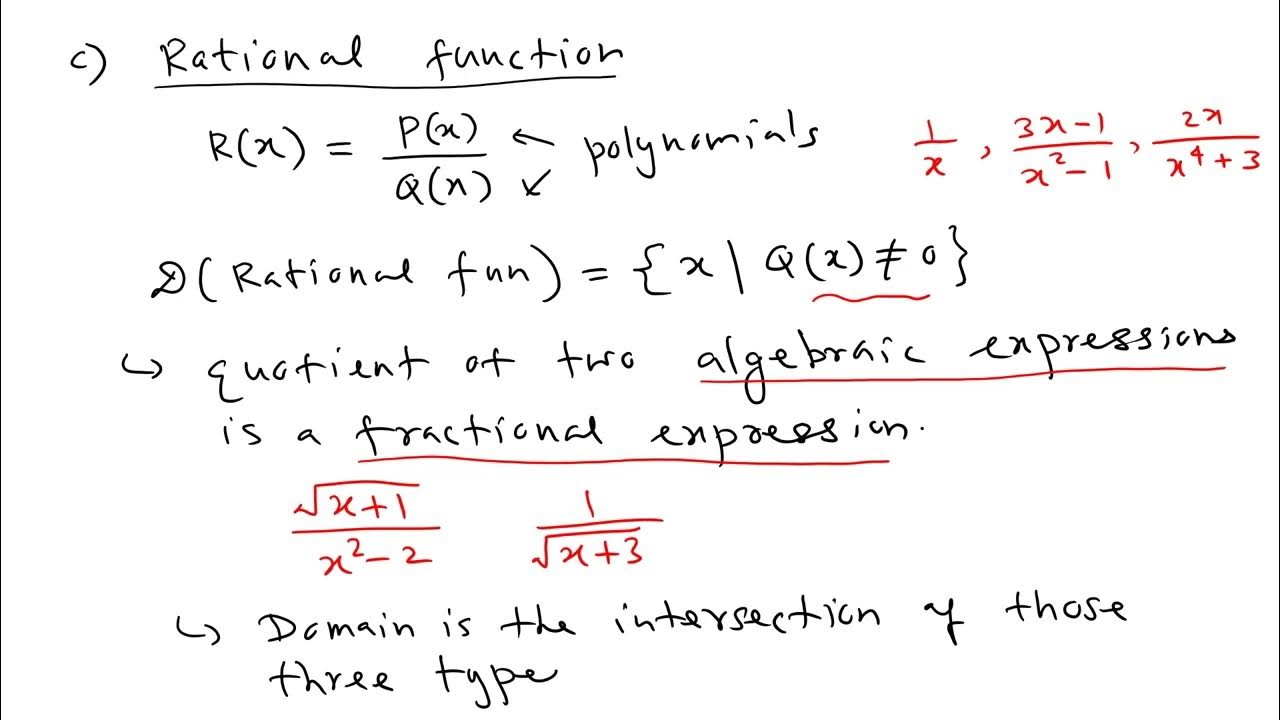 c) Rational function
R(x) = P(x)/Q(x) ← polynomials ↙ 1/x , (3x-1)/(x²-1) , 2x/(x⁴+3)
D(Rational fun) = {x | Q(x) ≠ 0}
↪ quotient of two algebraic expressions
is a fractional expression.
√(x+1)/(x²-2) 1/√(x+3)
↪ Domain is the intersection of those
three type